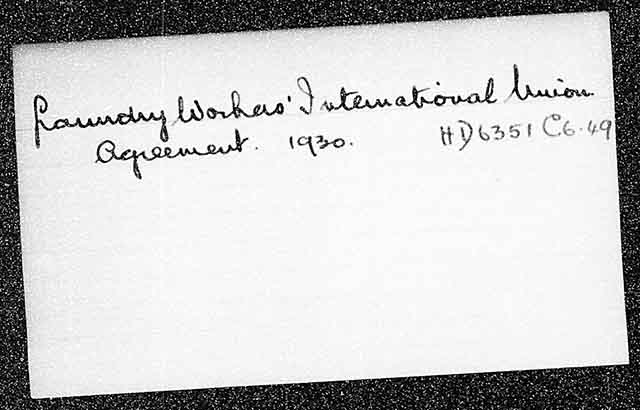 Laundry Workers' International Union
Agreement. 1930. HD6351 C6.49